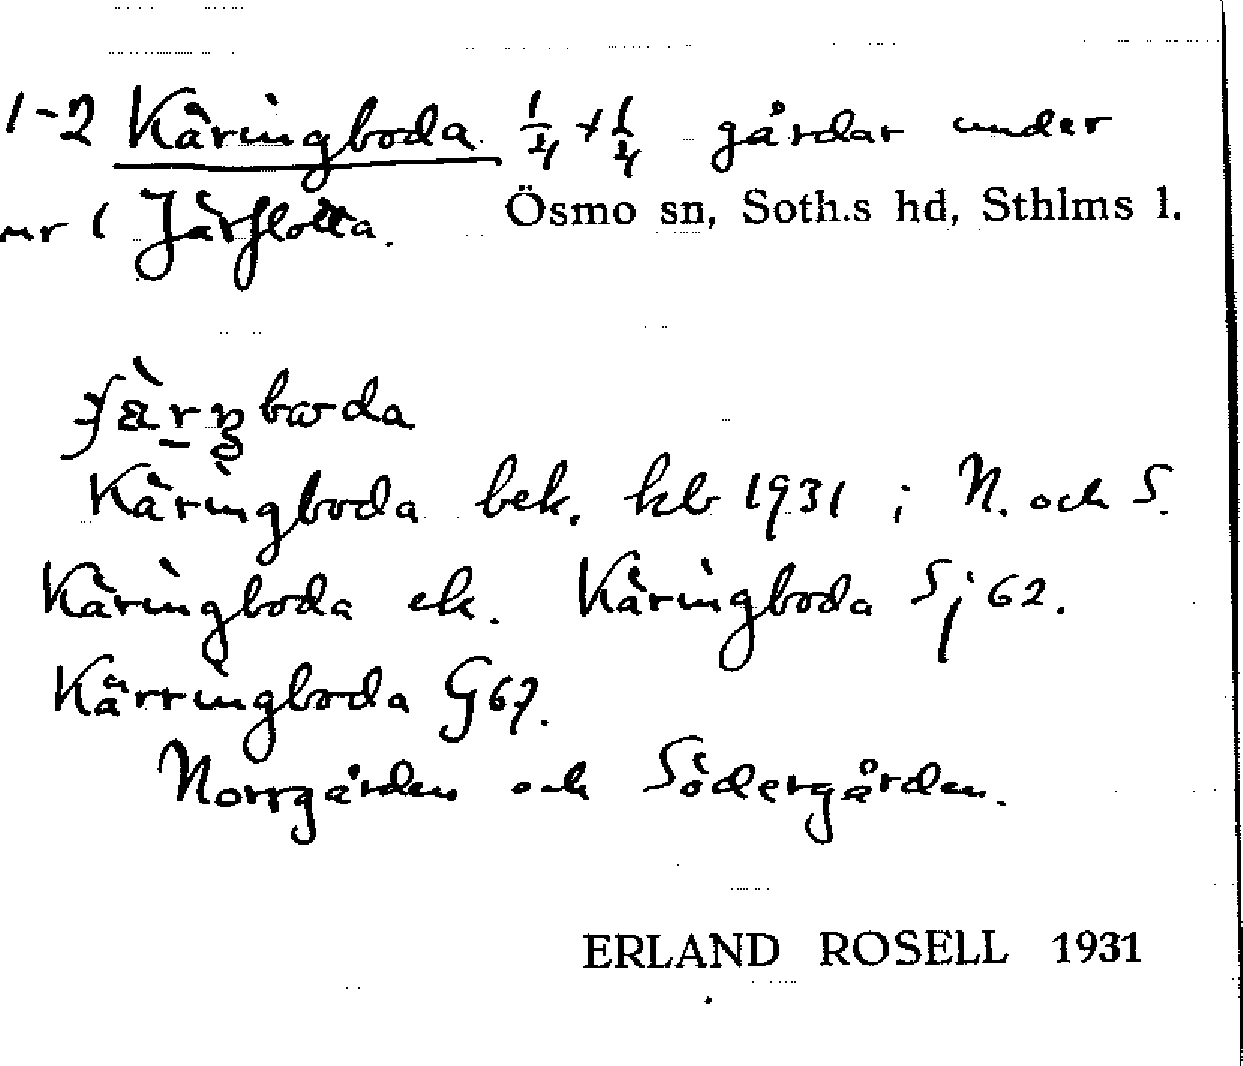 1-2 Käringboda 1/4 + 1/4 gårdar under
nr 1 Järflotta. Ösmo sn, Soth.s hd, Sthlms l.
Käringboda bek. kb 1931; N. och S.
Käringboda ek. Käringboda Sj 62.
Kärringboda G 67.
Norrgården och Södergården.
ERLAND ROSELL 1931